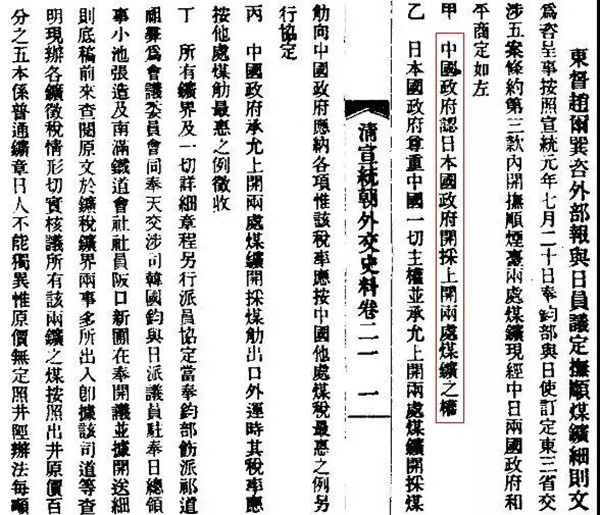 東督趙爾巽咨外部報與日員議定撫順煤鑛細則文
為咨呈事按照宣統元年七月二十日奉鈞部與日使訂定東三省交
涉五案條約第三款內開撫順煙臺兩處煤鑛現經中日兩國政府和
平商定如左
甲 中國政府認日本國政府開採上開兩處煤鑛之權
乙 日本國政府尊重中國一切主權並承允上開兩處煤鑛開採煤
清宣統朝外交史料卷二一 一
觔向中國政府應納各項惟該稅率應按中國他處煤稅最惠之例另
行協定
丙 中國政府承允上開兩處煤鑛開採煤觔出口外運時其稅率應
按他處煤觔最惠之例徵收
丁 所有鑛界及一切詳細章程另行派員協定當奉鈞部飭派祁道
祖彝為會議委員會同奉天交涉司韓國鈞與日派議員駐奉日總領
事小池張造及南滿鐵道會社社員阪口新圃在奉開議並據開送細
則底稿前來查閱原文於鑛稅鑛界兩事多所出入卽據該司道等查
明現辦各鑛徵稅情形切實核議所有該兩鑛之煤按照出井原價百
分之五本係普通鑛章日人不能獨異惟原價無定照井陘辦法每噸